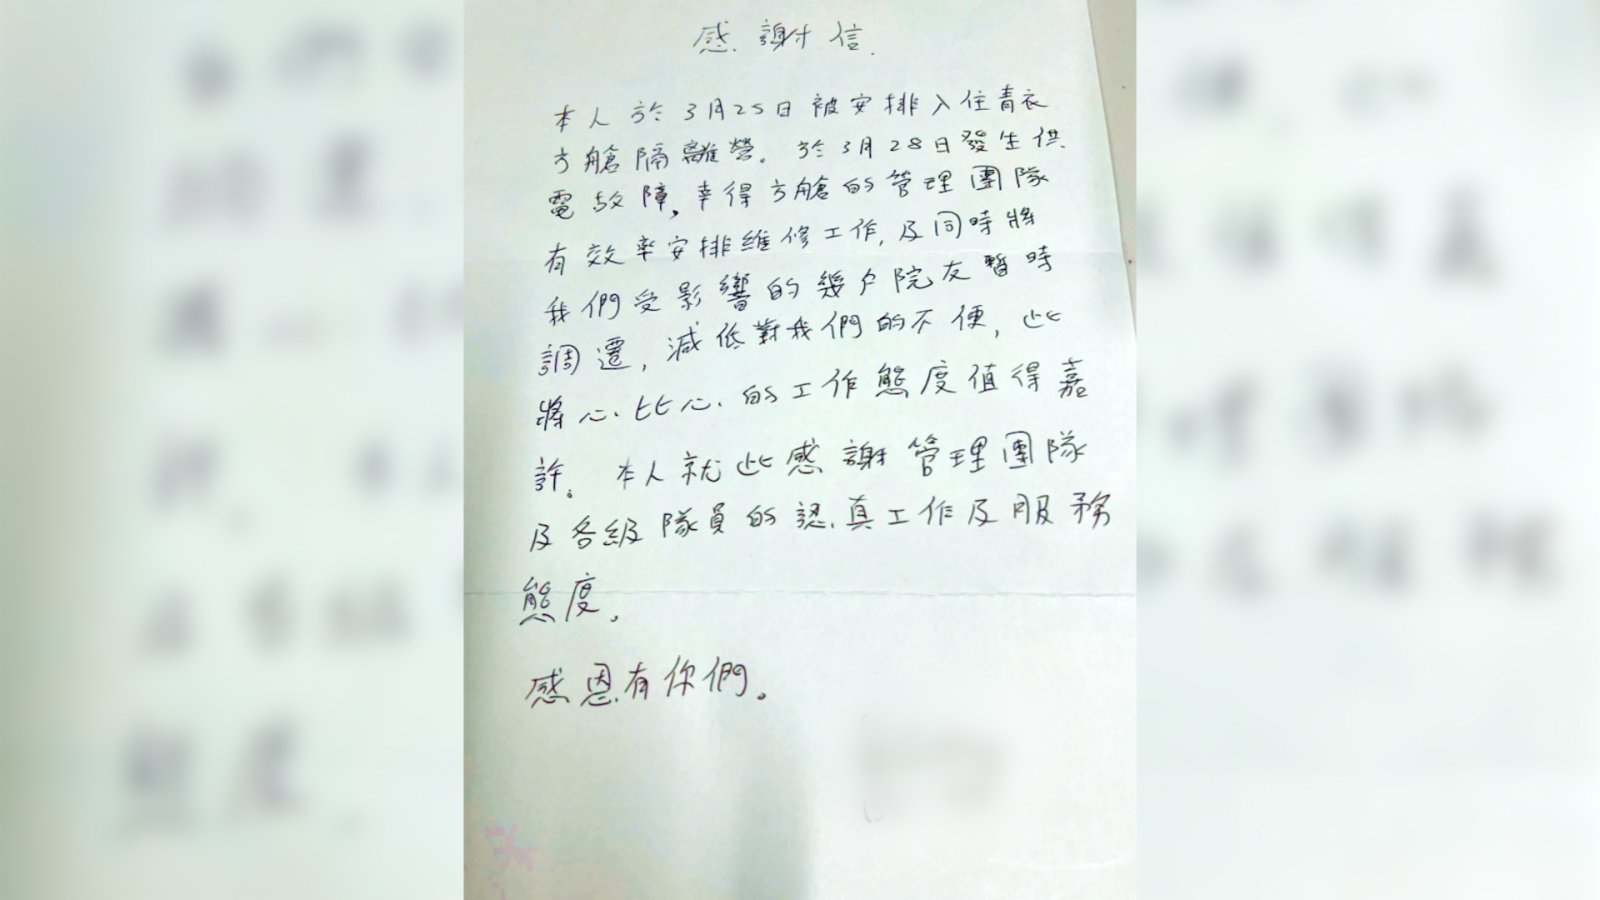 感謝信
本人於3月25日被安排入住青衣
方艙隔離營。於3月28日發生供
電故障，幸得方艙的管理團隊
有效率安排維修工作，及同時將
我們受影響的幾户院友暫時
調遷，減低對我們的不便，此
將心比心的工作態度值得嘉
許。本人就此感謝管理團隊
及各級隊員的認真工作及服務
態度。
感恩有你們。